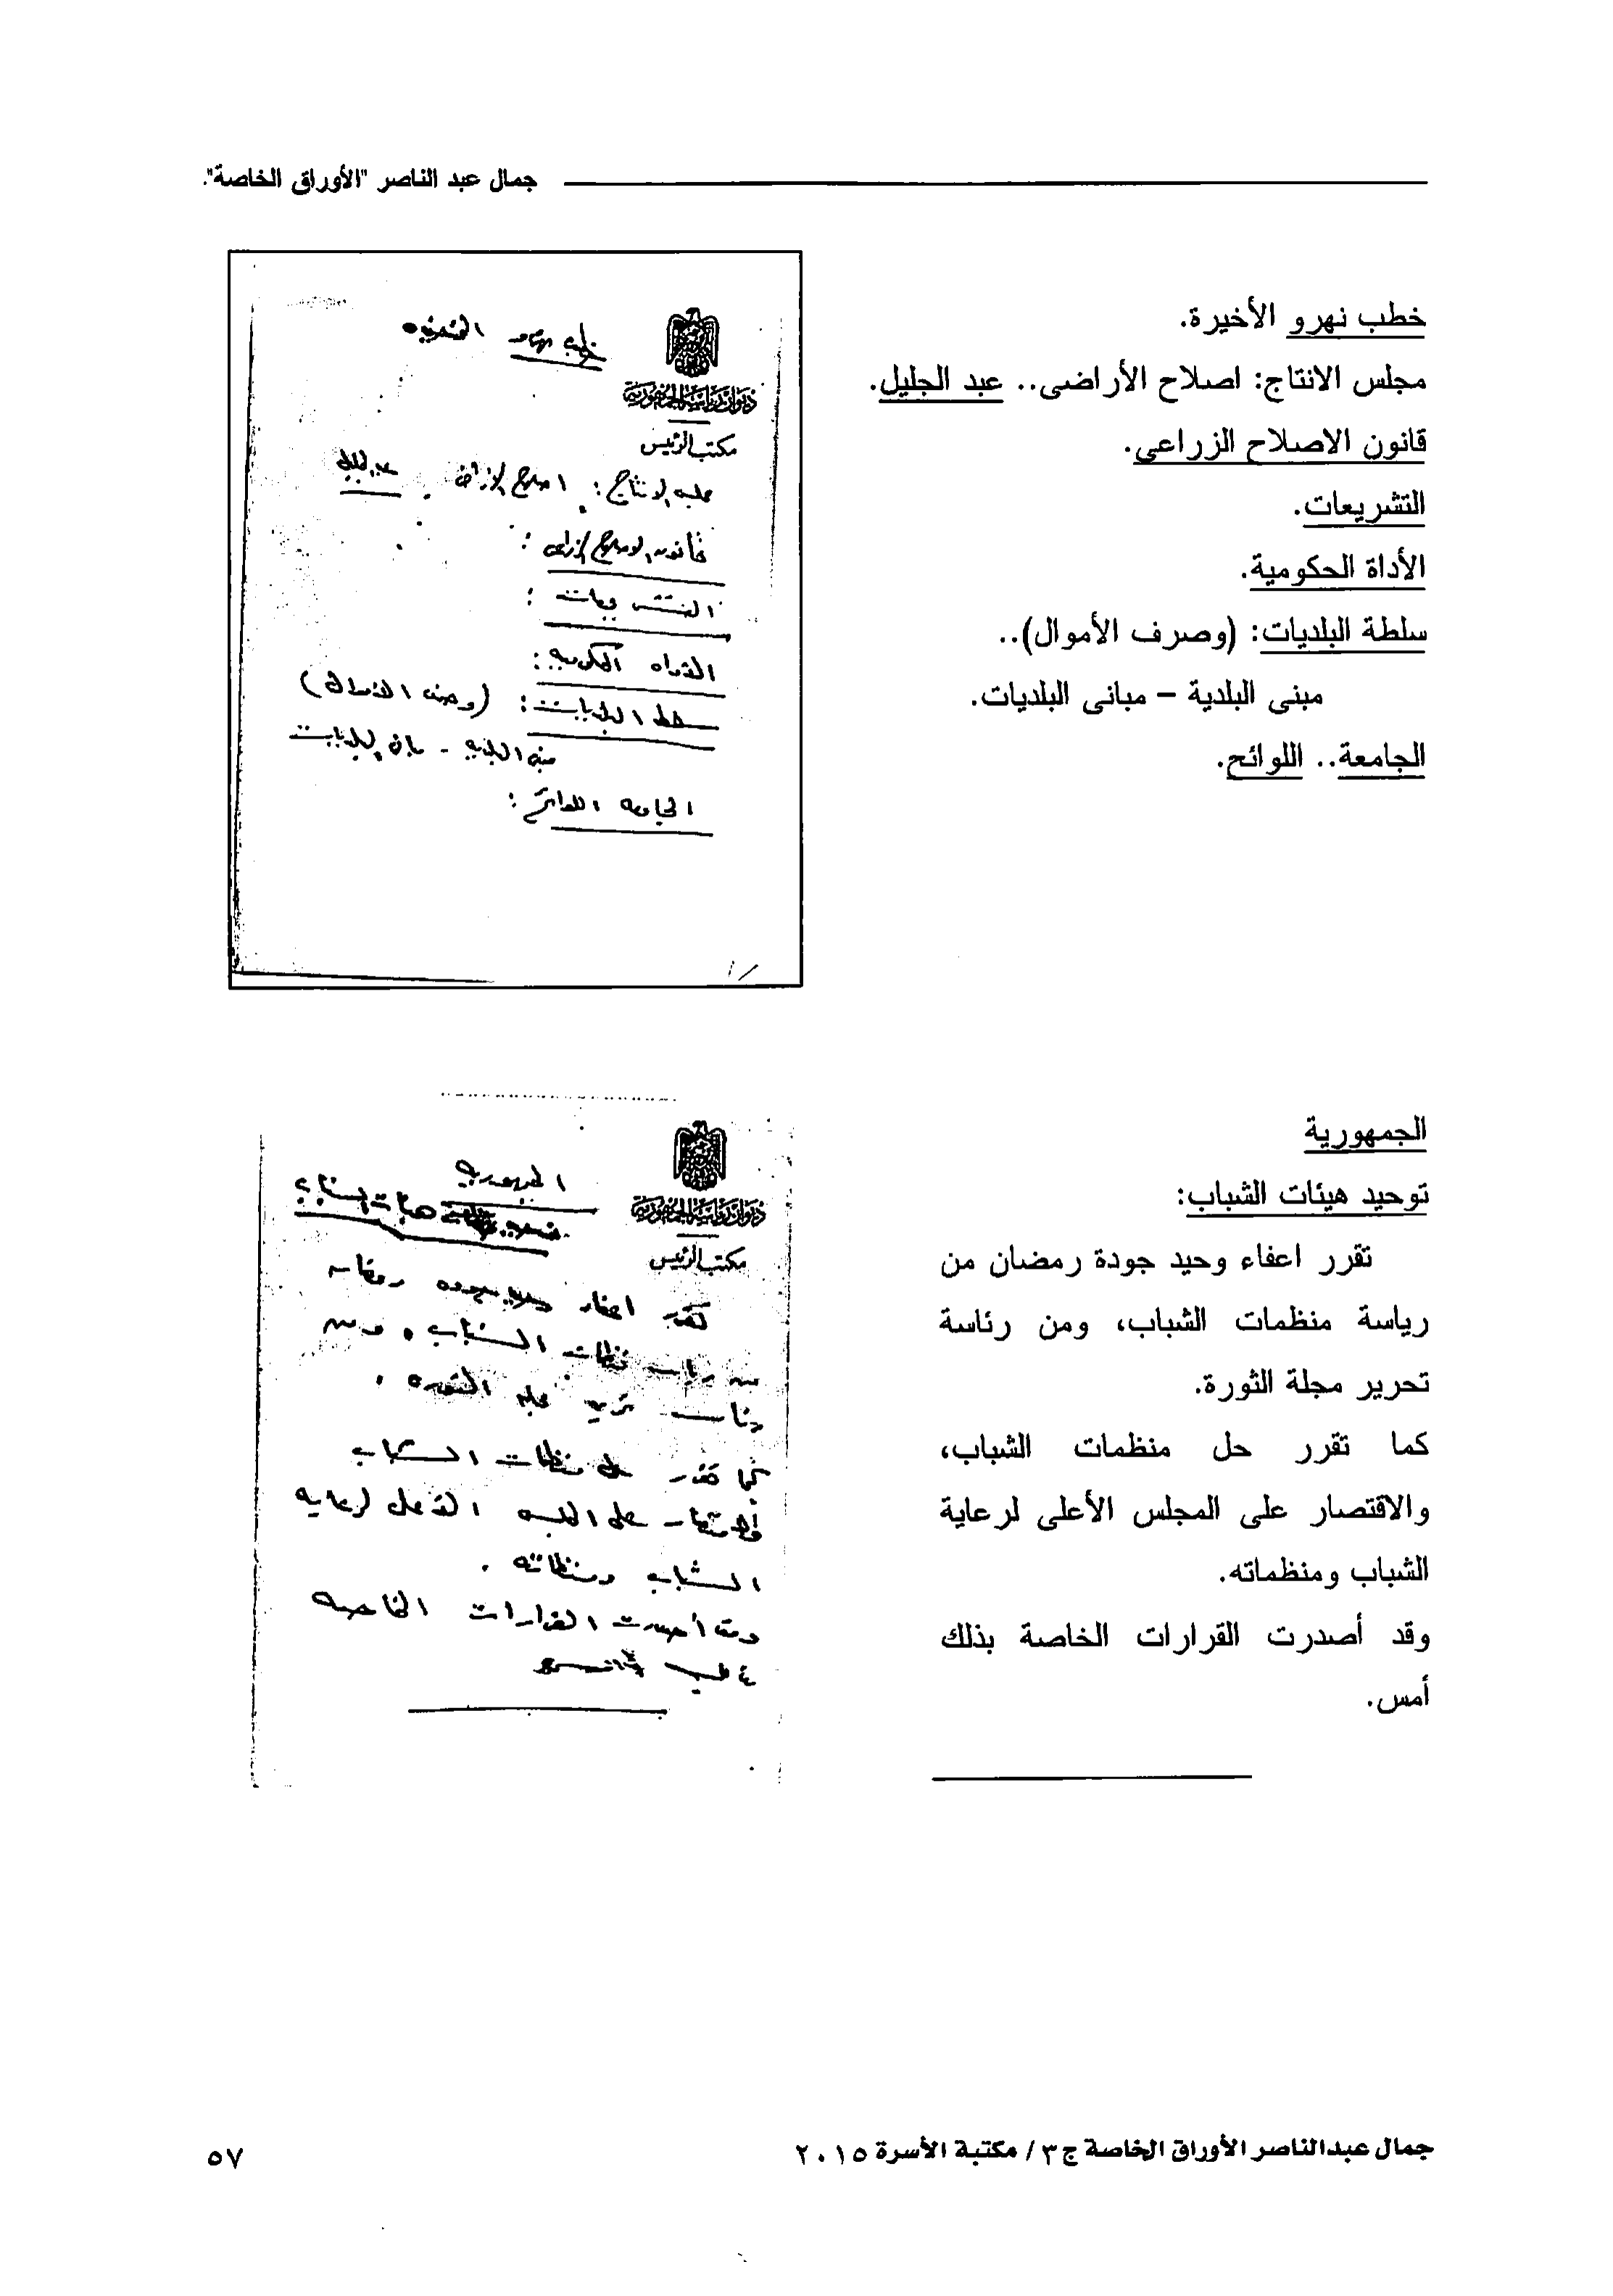 جمال عبد الناصر "الأوراق الخاصة".
خطب نهرو الأخيرة.
مجلس الانتاج: اصلاح الأراضى.. عبد الجليل.
قانون الاصلاح الزراعى.
التشريعات.
الأداة الحكومية.
سلطة البلديات: (وصرف الأموال)..
مبنى البلدية – مبانى البلديات.
الجامعة.. اللوائح.
ديوان رئاسة الجمهورية
مكتب الرئيس
خطب نهرو الأخيرة
مجلس الانتاج: اصلاح الأراضى . عبد الجليل
قانون الاصلاح الزراعى :
التشريعات :
الأداة الحكومية :
سلطة البلديات : (وصرف الأموال)
مبنى البلدية - مبانى البلديات
الجامعة اللوائح :
الجمهورية
توحيد هيئات الشباب:
تقرر اعفاء وحيد جودة رمضان من
رياسة منظمات الشباب، ومن رئاسة
تحرير مجلة الثورة.
كما تقرر حل منظمات الشباب،
والاقتصار على المجلس الأعلى لرعاية
الشباب ومنظماته.
وقد أصدرت القرارات الخاصة بذلك
أمس.
ديوان رئاسة الجمهورية
مكتب الرئيس
الجمهورية
توحيد هيئات الشباب
تقرر اعفاء وحيد جوده رمضان
من رياسة منظمات الشباب ، ومن
رئاسة تحرير مجلة الثورة .
كما تقرر حل منظمات الشباب
والاقتصار على المجلس الأعلى لرعاية
الشباب ومنظماته .
وقد أصدرت القرارات الخاصة
جمال عبدالناصر الأوراق الخاصة ج٣ / مكتبة الأسرة ٢٠١٥
٥٧